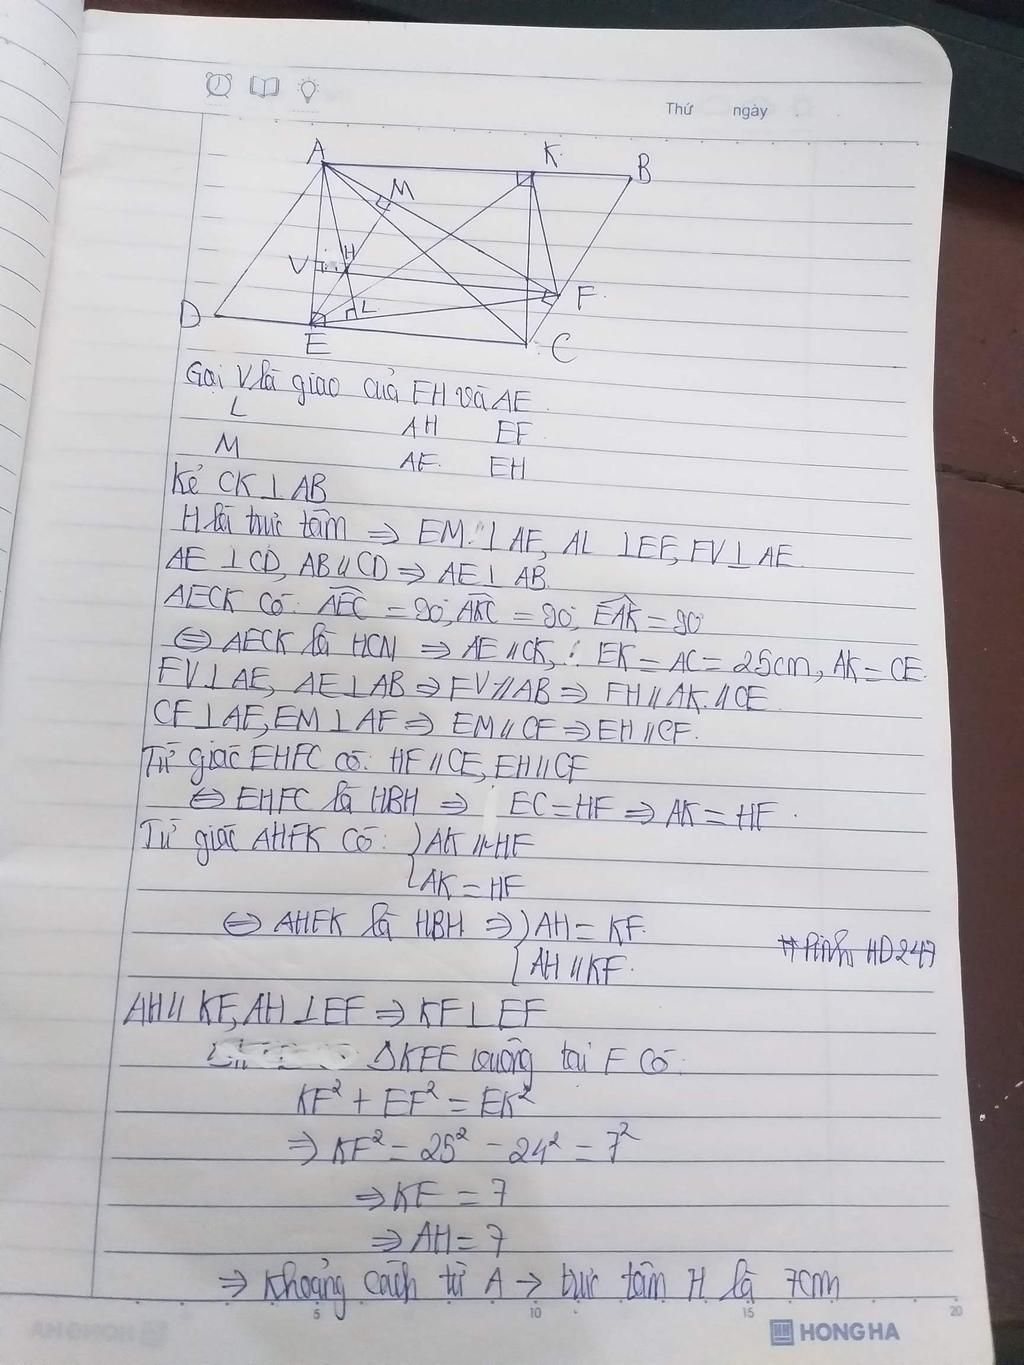 Thứ ngày
A K B
M
V H
D E L F
C
Gọi V là giao của FH và AE
L AH EF
M AF EH
Kẻ CK ⊥ AB
H là trực tâm ⇒ EM ⊥ AF, AL ⊥ EF, FV ⊥ AE
AE ⊥ CD, AB // CD ⇒ AE ⊥ AB
AECK có: AEC = 90, AKC = 90, EAK = 90
⇔ AECK là HCN ⇒ AE // CK, EK = AC = 25cm, AK = CE
FV ⊥ AE, AE ⊥ AB ⇒ FV // AB ⇒ FH // AK // CE
CF ⊥ AF, EM ⊥ AF ⇒ EM // CF ⇒ EH // CF
Tứ giác EHFC có: HF // CE, EH // CF
⇔ EHFC là HBH ⇒ EC = HF ⇒ AK = HF
Tứ giác AHFK có: { AK // HF
AK = HF
⇔ AHFK là HBH ⇒ { AH = KF
AH // KF
HD247
AH // KF, AH ⊥ EF ⇒ KF ⊥ EF
ΔKFE vuông tại F có:
KF² + EF² = EK²
⇒ KF² = 25² - 24² = 7²
⇒ KF = 7
⇒ AH = 7
⇒ Khoảng cách từ A → trực tâm H là 7cm
5 10 15 20
HONG HA